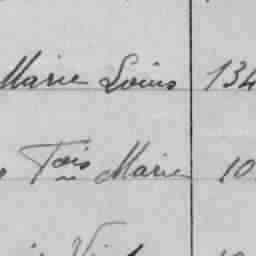 Marie Louis 134
Tois Marie 10